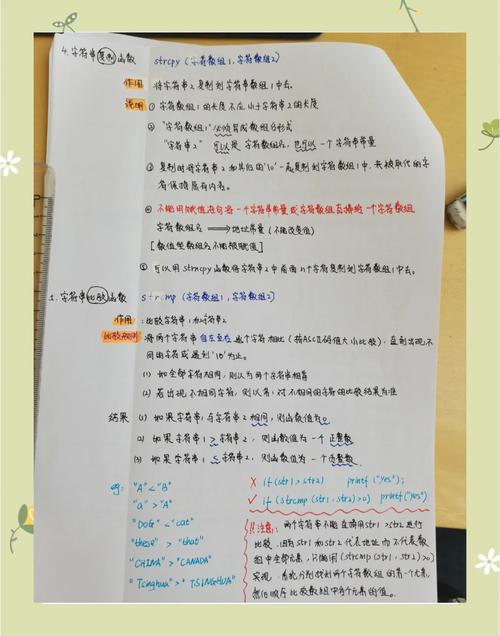 4.字符串复制函数 strcpy (字符数组1,字符数组2)
作用 :将字符串2复制到字符串数组1中去。
说明 ① 字符数组1的长度不应小于字符串2的长度
② "字符数组1"必须写成数组名形式
"字符串2" 可以是 字符数组名,也可以一个字符串常量
③ 复制时将字符串2和其后的'\0'一起复制到字符数组1中,未被取代的字
符保持原有内容。
④ 不能用赋值语句将一个字符串常量或字符数组直接给一个字符数组
字符数组名 ⟹ 地址常量 (不能改变值)
[数值型数组名不能被赋值]
⑤ 可以用strncpy函数将字符串2中前面n个字符复制到字符数组1中去。
5.字符串比较函数 strcmp (字符数组1,字符数组2)
作用 :比较字符串1和字符串2
比较规则 :将两个字符串自左至右逐个字符相比(按ASCII码值大小比较),直到出现不
同的字符或遇到'\0'为止。
(1) 如全部字符相同,则认为两个字符串相等
(2) 若出现不相同字符,则以第1对不相同的字符的比较结果为准
结果 (1) 如果字符串1与字符串2相同,则函数值为0
(2) 如果字符串1>字符串2,则函数值为一个正整数
(3) 如果字符串1<字符串2,则函数值为一个负整数
eg: "A"<"B"
"a">"A"
"DOG"<"cat"
"these">"that"
"CHINA">"CANADA"
"Tsinghua">"TSINGHUA"
✗ if(str1>str2) printf("yes");
✓ if(strcmp(str1,str2)>0) printf("yes")
!!注意: 两个字符串不能直接用str1>str2进行
比较,因为str1和str2代表地址而不代表数
组中全部元素,只能用(strcmp(str1,str2)>0)
实现,系统分别找到两个字符数组的第一个元素,
然后顺序比较数组中各个元素的值。